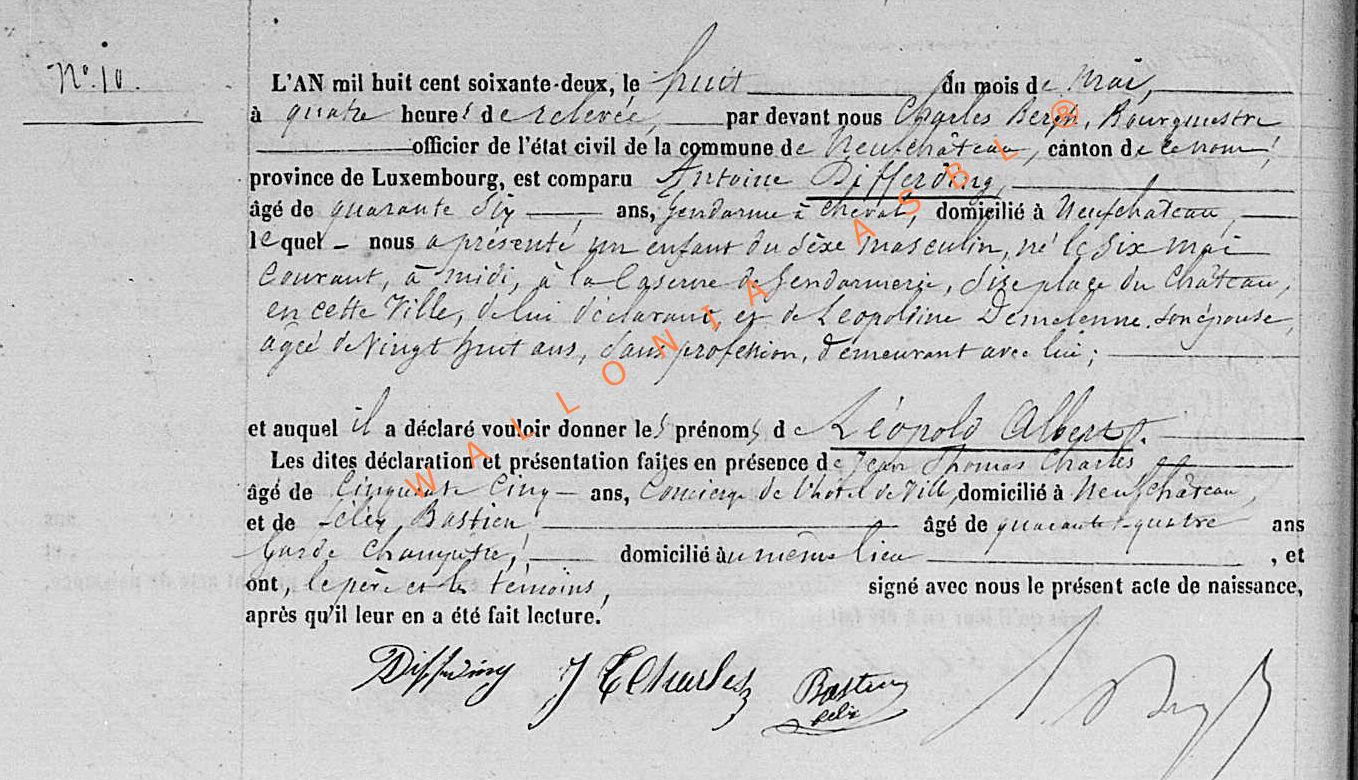 N.º 10.
L'AN mil huit cent soixante-deux, le huit du mois de Mai,
à quatre heures de relevée, par devant nous Charles Bergh, Bourgmestre
officier de l'état civil de la commune de Neufchâteau, canton de ce nom,
province de Luxembourg, est comparu Antoine Differding,
âgé de quarante six ans, gendarme à cheval, domicilié à Neufchâteau,
lequel nous a présenté un enfant du sèxe masculin, né le six mai
courant, à midi, à la Caserne de Gendarmerie, sise place du Château,
en cette Ville, de lui déclarant et de Léopoldine Demelenne son épouse,
agée de Vingt huit ans, sans profession, demeurant avec lui;
et auquel il a déclaré vouloir donner les prénoms de Léopold Albert.
Les dites déclaration et présentation faites en présence de Jean Thomas Charles
âgé de Cinquante Cinq ans, Concierge de l'hotel de Ville, domicilié à Neufchâteau,
et de Félix Bastien âgé de quarante-quatre ans
Garde Champêtre, domicilié au même lieu, et
ont, le père et les témoins, signé avec nous le présent acte de naissance,
après qu'il leur en a été fait lecture.
Differding J T Charles Bastien
felix
WALLONIA ASBL ®